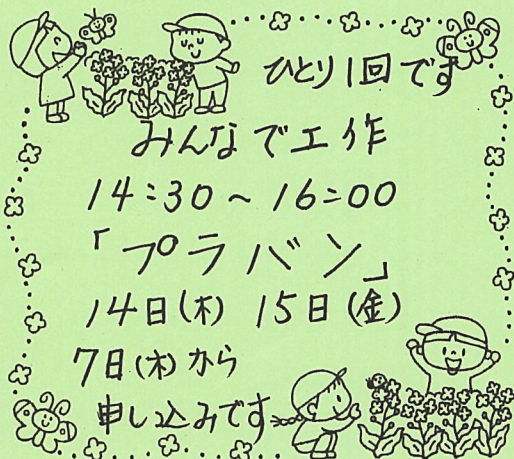 ひとり1回です
みんなで工作
14:30～16:00
「プラバン」
14日(木) 15日(金)
7日(木)から
申し込みです